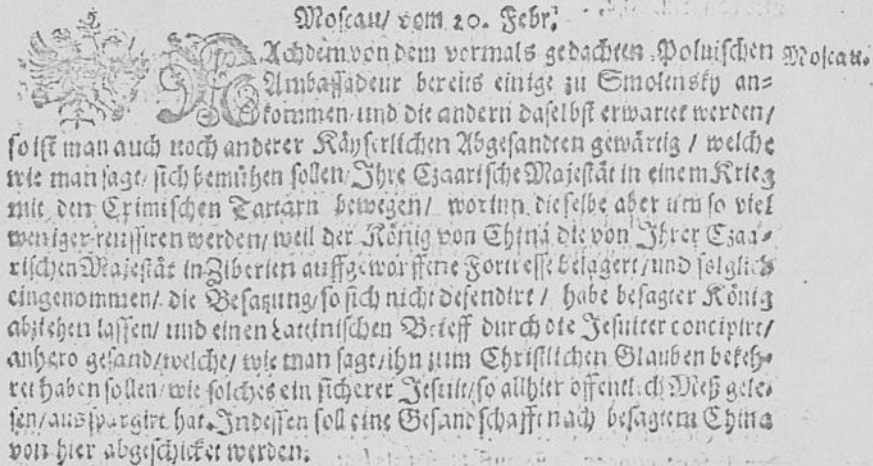 Moscau/ vom 20. Febr.
NAchdem von dem vormals gedachten Polnischen
Moscau.
Ambassadeur bereits einige zu Smolensky an-
kommen und die andern daselbst erwartet werden/
so ist man auch noch anderer Käyserlichen Abgesandten gewärtig / welche
wie man sagt/ sich bemühen sollen/ Ihre Czaarische Majestät in einem Krieg
mit den Crimischen Tartarn bewegen/ worinn dieselbe aber um so viel
weniger reussiren werden/ weil der König von China die von Ihrer Czaa-
rischen Majestät in Ziberien auffgeworffene Fortresse belagert/ und folglich
eingenommen/ die Besatzung/ so sich nicht defendirt / habe besagter König
abziehen lassen/ und einen Lateinischen Brieff durch die Jesuiter concipirt/
anhero gesand/ welche/ wie man sagt/ ihn zum Christlichen Glauben bekeh-
ret haben sollen/ wie solches ein sicherer Jesuit/ so allhier öffentlich Meß gele-
sen/ausspargirt hat. Indessen soll eine Gesandschafft nach besagtem China
von hier abgeschicket werden.